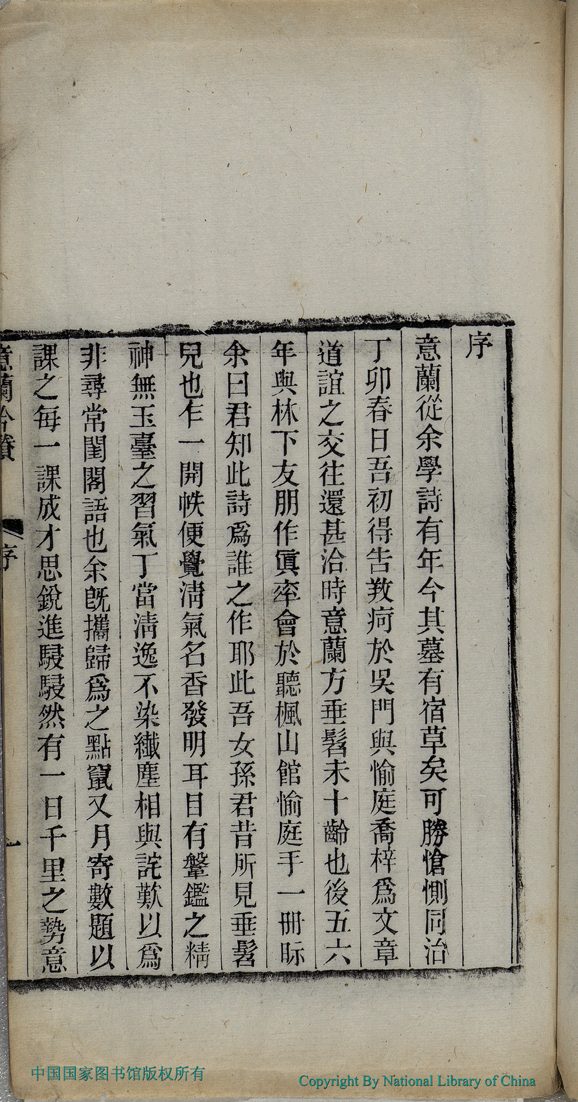 序
意蘭從余學詩有年今其墓有宿草矣可勝愴惻同治
丁卯春日吾初得告敎疴於吳門與愉庭喬梓爲文章
道誼之交往還甚洽時意蘭方垂髫未十齡也後五六
年與林下友朋作眞率會於聽楓山館愉庭手一冊眎
余曰君知此詩爲誰之作耶此吾女孫君昔所見垂髫
兒也乍一開帙便覺淸氣名香發明耳目有鞶鑑之精
神無玉臺之習氣丁當淸逸不染纎塵相與詫歎以爲
非尋常閨閣語也余旣攜歸爲之點竄又月寄數題以
課之每一課成才思銳進駸駸然有一日千里之勢意
意蘭唫賸
序
一
中国国家图书馆版权所有
Copyright By National Library of China